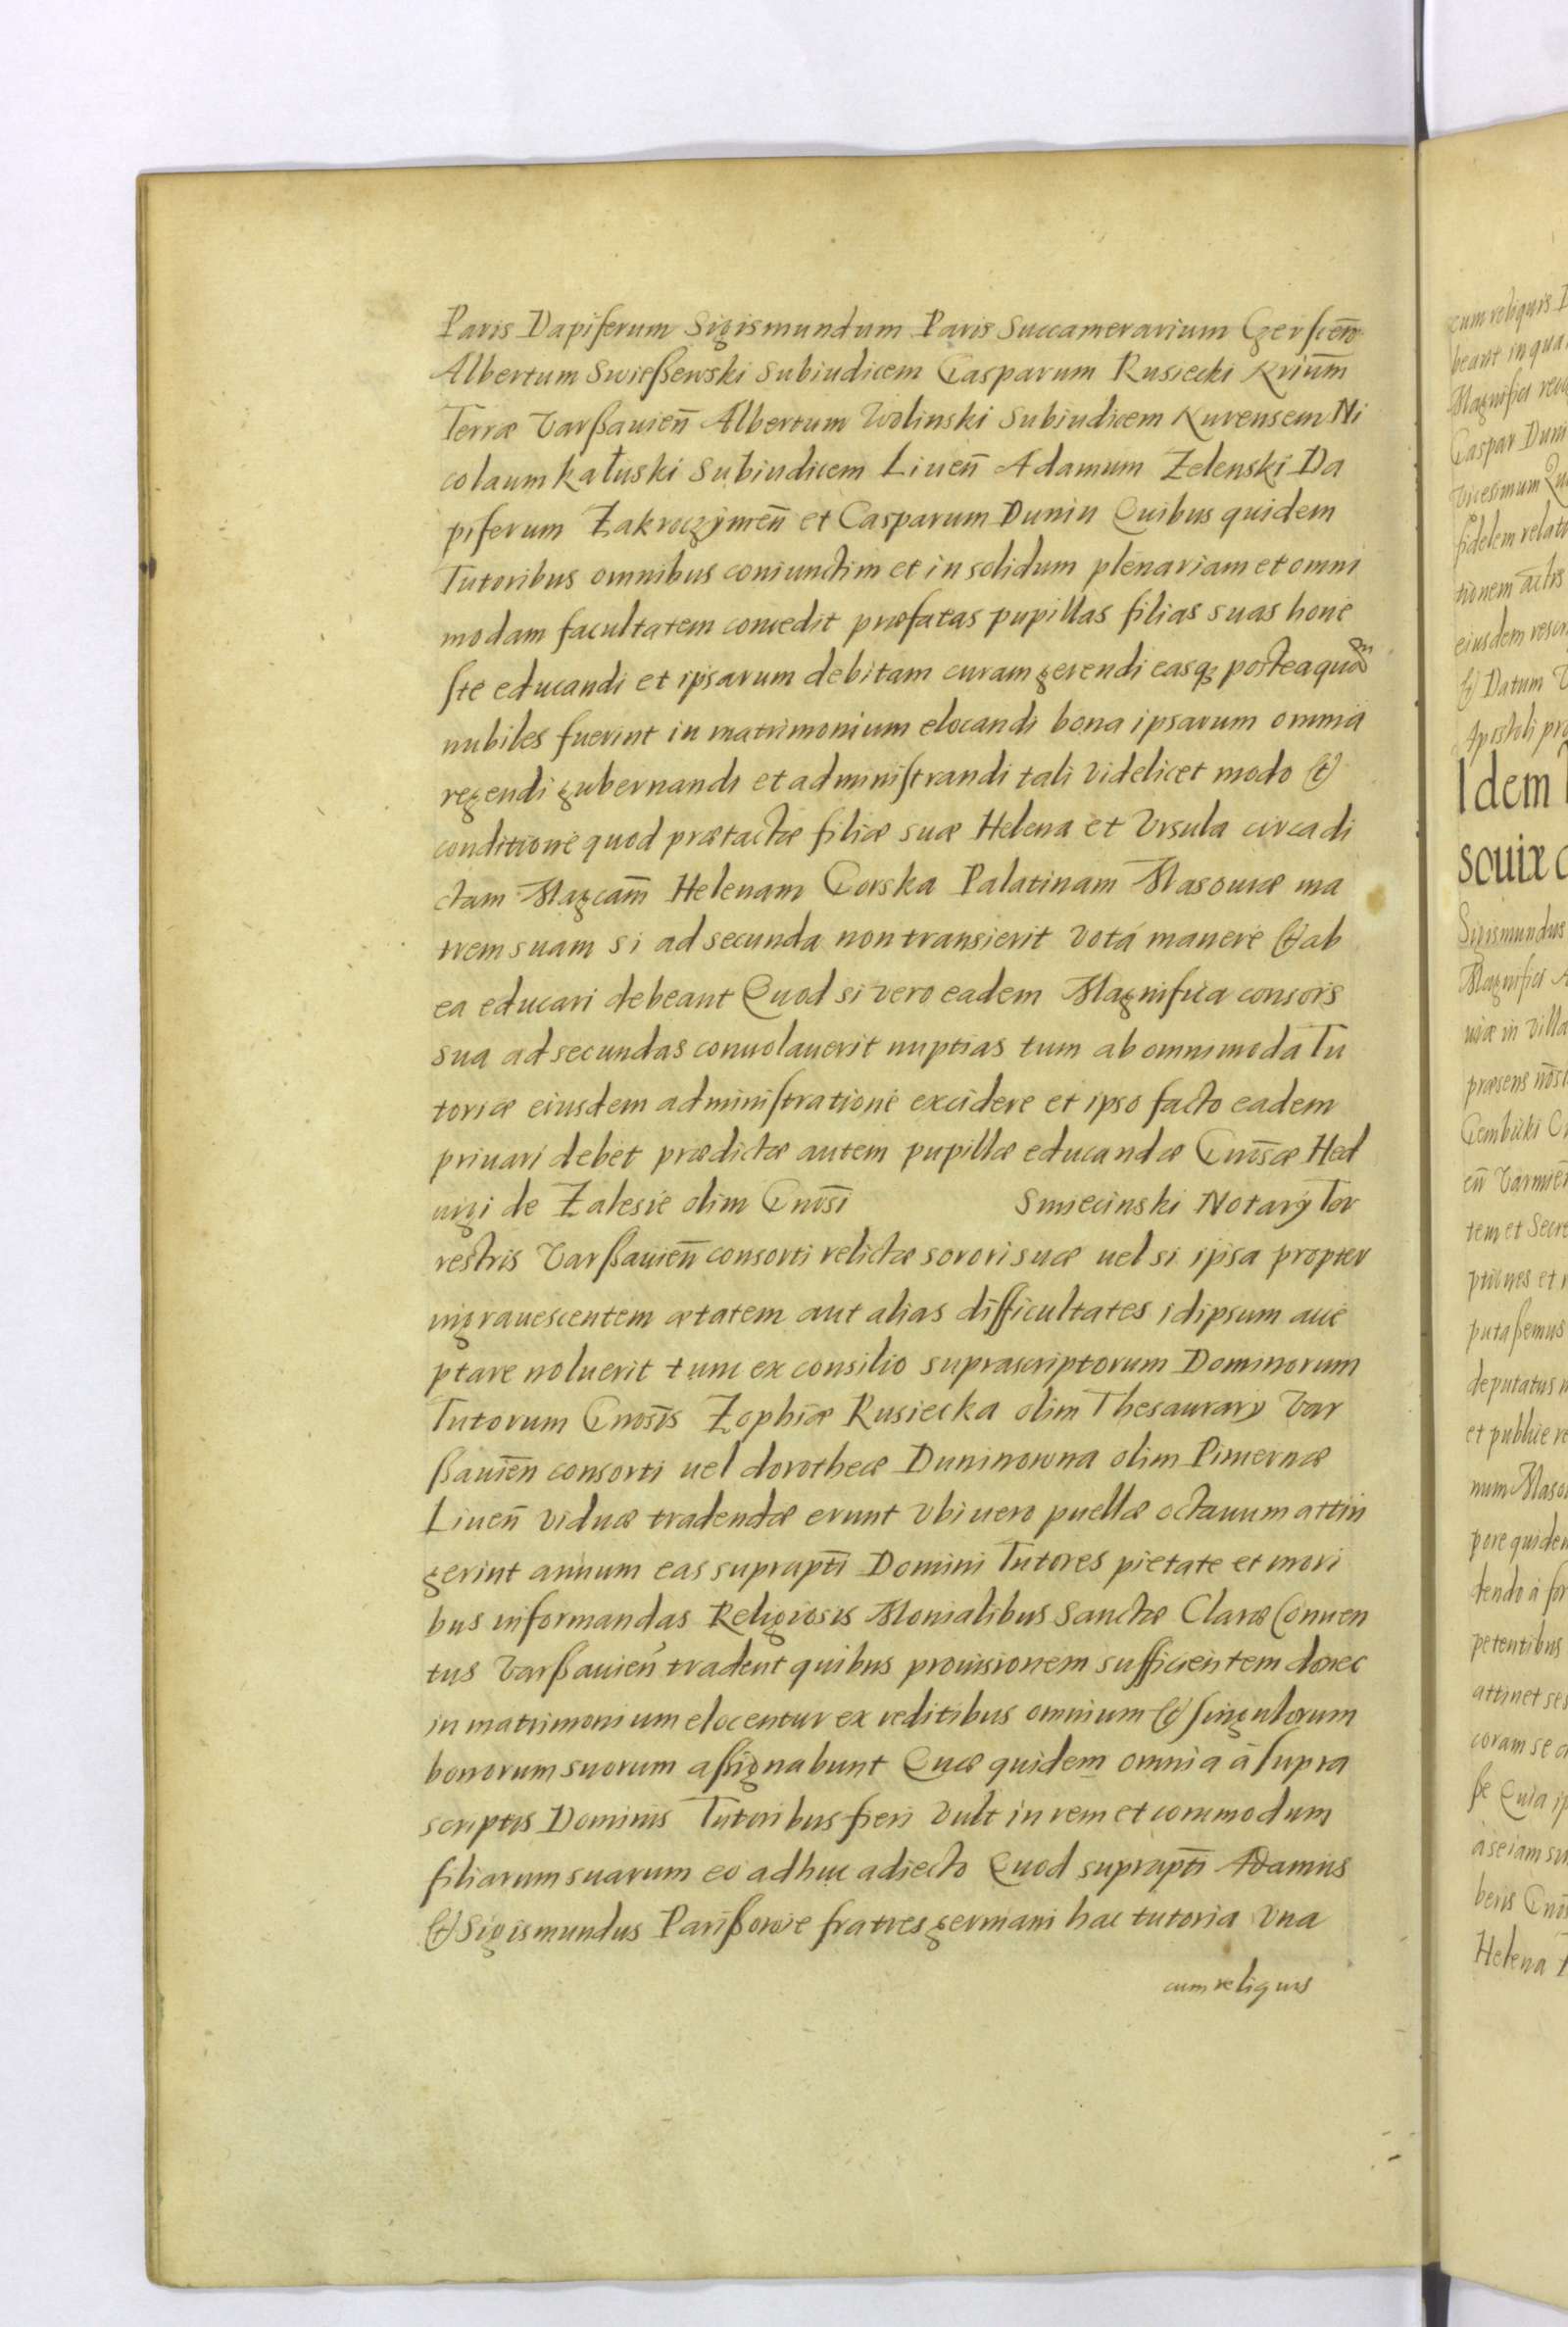 Paris Dapiferum Sigismundum Paris Succamerarium Czerscen̄
Albertum Swießewski Subiudicem Gasparum Rusiecki Nriūm
Terræ Varßauien̄ Albertum Wolinski Subiudicem Rurensem Ni
colaum Kałuski Subiudicem Liuen̄ Adamum Zelenski Da
piferum Zakroczymen̄ et Casparum Dunin Quibus quidem
Tutoribus omnibus coniunctim et in solidum plenariam et omni
modam facultatem concedit præfatas pupillas filias suas hone
ste educandi et ipsarum debitam curam gerendi easq3 posteaquam
nubiles fuerint in matrimonium elocandi bona ipsarum omnia
regendi gubernandi et administrandi tali videlicet modo et
conditione quod prætactæ filiæ suæ Helena et Vrsula circa di
ctam Magcam̄ Helenam Gorska Palatinam Masouiæ ma
trem suam si ad secunda non transierit vota manere et ab
ea educari debeant Quod si vero eadem Magnifica consors
sua ad secundas conuolauerit nuptias tum ab omnimoda Tu
toriæ eiusdem administratione excidere et ipso facto eadem
priuari debet prædictæ autem pupillæ educandæ Gnōsæ Hed
uigi de Zalesie olim Gnosī Smiecinski Notarÿ Ter
restris Varßauien̄ consorti relictæ sorori suæ uel si ipsa propter
ingrauescentem ætatem aut alias difficultates idipsum acce
ptare noluerit tum ex consilio suprascriptorum Dominorum
Tutorum Gnosīs Zophiæ Rusiecka olim Thesaurarÿ Var
ßauien̄ consorti uel dorotheæ Duninowna olim Pincernæ
Liuen̄ viduæ tradendæ erunt Vbi uero puellæ octauum attin
gerint annum eas suprapt̄i Domini Tutores pietate et mori
bus informandas Religiosis Monialibus Sanctæ Claræ Conuen
tus Varßauien̄ tradent quibus prouisionem sufficientem donec
in matrimonium elocentur ex reditibus omnium et singulorum
bonorum suorum aßignabunt Quæ quidem omnia à supra
scriptis Dominis Tutoribus fieri vult in rem et commodum
filiarum suarum eo adhuc adiecto Quod suprapt̄i Adamus
et Sigismundus Parißowie fratres germani hac tutoria vna
cum reliquis
cum reliquis
beant in qua
Magnifici
Caspar Duni
vicesimum
fidelem relati
tionem actis
eiusdem
et Datum
Apostoli
Idem
souiæ
Sigismundus
Magnifici
uiæ in villa
præsens
Gembicki
tem et Secre
ptiones et
putaßemus
deputatus
et publice re
num Maso
pore quidem
tendo à
petentibus
attinet
coram se
ße Quia
à se iam
Helena